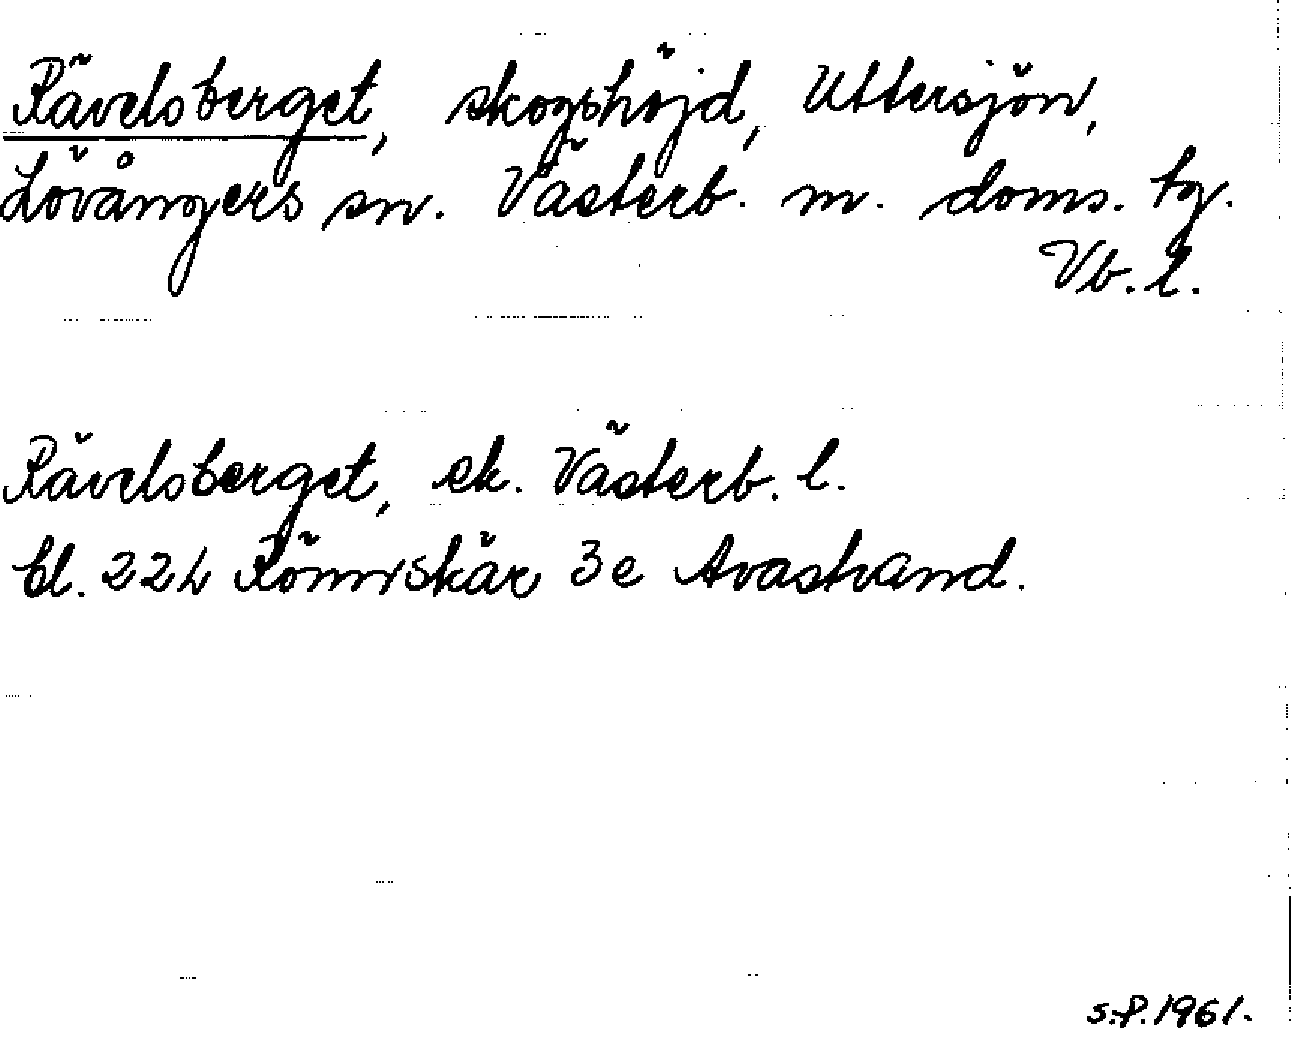 Rävelsberget, skogshöjd, Uttersjön,
Lövångers sn. Västerb. m. doms. tg.
Vb. l.
Rävelsberget, ek. Västerb. l.
bl. 22L Rönnskär 3e Avastrand.
S.P. 1961.